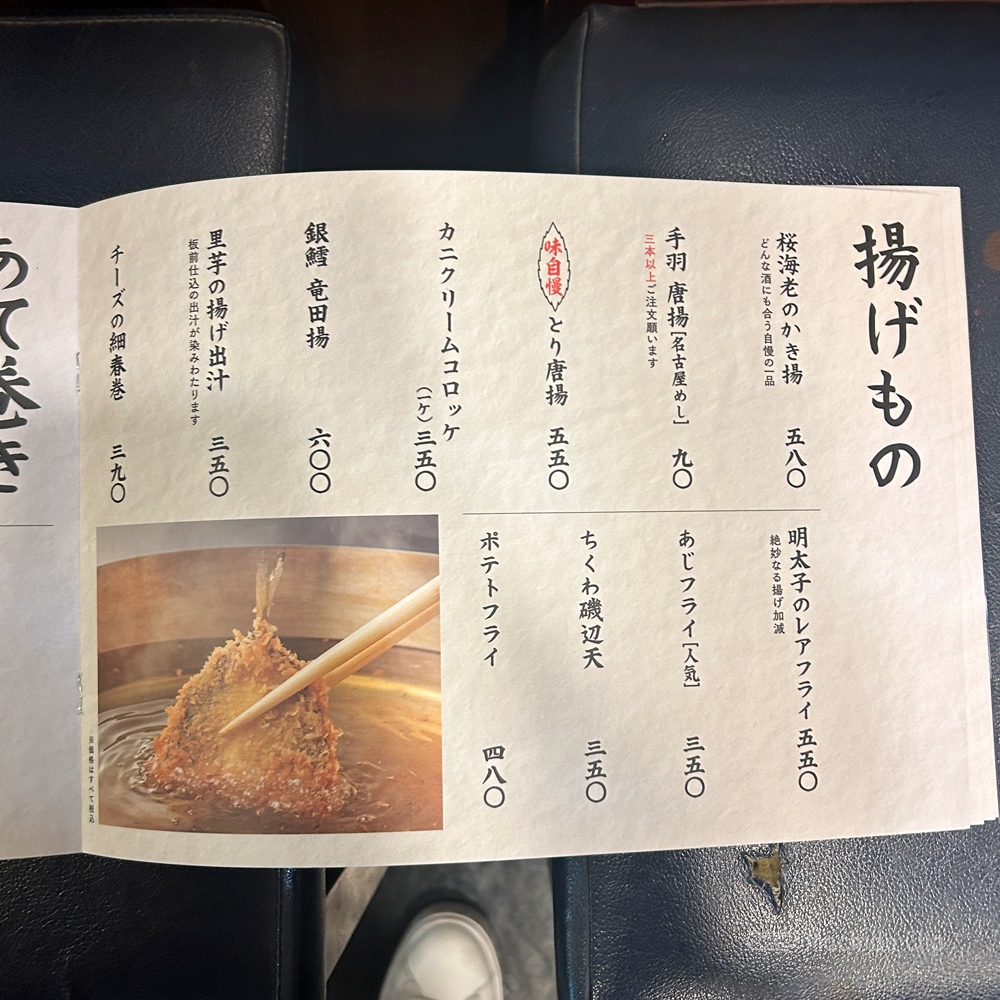 揚げもの
桜海老のかき揚 五八〇
どんな酒にも合う自慢の一品
手羽 唐揚[名古屋めし] 九〇
三本以上ご注文願います
味自慢 とり唐揚 五五〇
カニクリームコロッケ
(一ケ)三五〇
銀鱈 竜田揚 六〇〇
里芋の揚げ出汁 三五〇
板前仕込の出汁が染みわたります
チーズの細春巻 三九〇
明太子のレアフライ 五五〇
絶妙なる揚げ加減
あじフライ[人気] 三五〇
ちくわ磯辺天 三五〇
ポテトフライ 四八〇
※価格はすべて税込
あて巻き